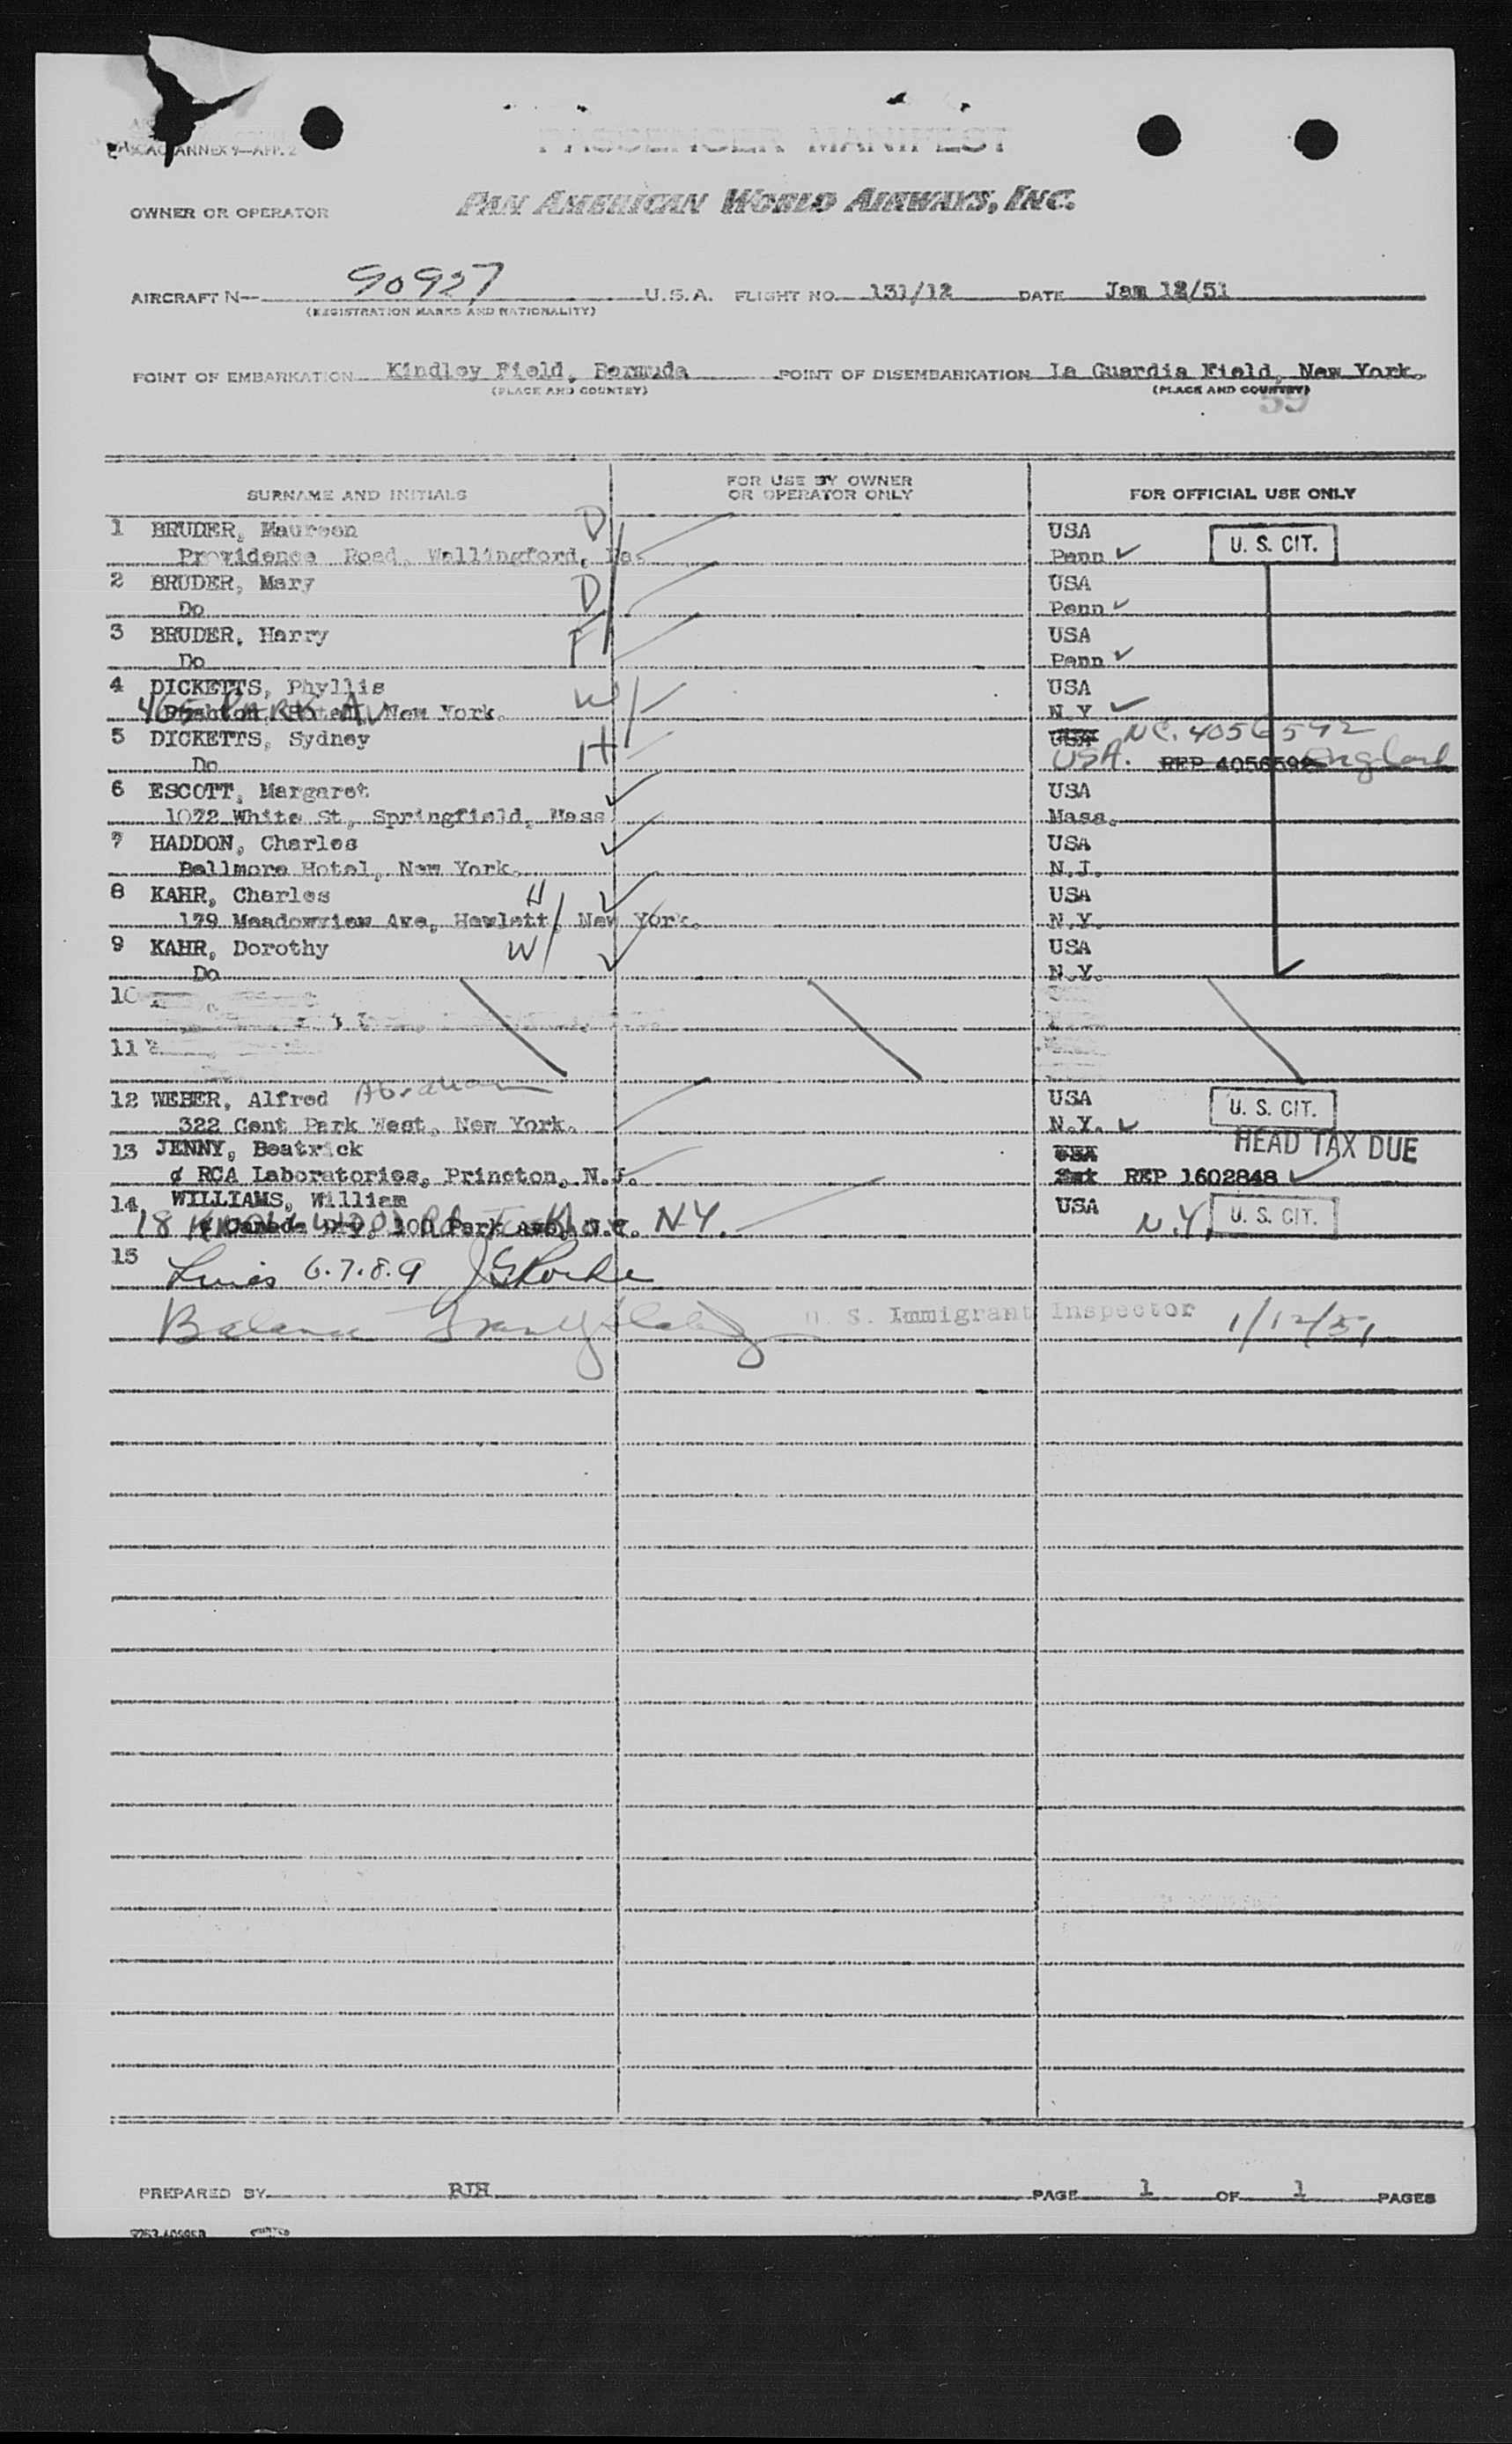 ICAO ANNEX 9—APP. 2
PASSENGER MANIFEST
OWNER OR OPERATOR PAN AMERICAN WORLD AIRWAYS, INC.
AIRCRAFT N— 90927 U.S.A. FLIGHT NO. 131/12 DATE Jan 12/51
(REGISTRATION MARKS AND NATIONALITY)
POINT OF EMBARKATION Kindley Field, Bermuda POINT OF DISEMBARKATION La Guardia Field, New York.
(PLACE AND COUNTRY) (PLACE AND COUNTRY)
59
SURNAME AND INITIALS FOR USE BY OWNER OR OPERATOR ONLY FOR OFFICIAL USE ONLY
1 BRUDER, Maureen D USA U. S. CIT.
Providence Road, Wallingford, Penn ✓
2 BRUDER, Mary D USA
Do Penn ✓
3 BRUDER, Harry F USA
Do Penn ✓
4 DICKETTS, Phyllis W USA
465 PARK AV New York. N.Y ✓
5 DICKETTS, Sydney H USA NC. 4056592
Do USA. REP 4056592 England
6 ESCOTT, Margaret ✓ USA
1072 White St, Springfield, Mass Mass.
7 HADDON, Charles ✓ USA
Bellmore Hotel, New York. N.J.
8 KAHR, Charles H ✓ USA
179 Meadowview Ave, Hewlett, New York. N.Y.
9 KAHR, Dorothy W ✓ USA
Do N.Y.
10
11
12 WEBER, Alfred Abraham USA U. S. CIT.
322 Cent Park West, New York. N.Y. ✓
13 JENNY, Beatrick USA HEAD TAX DUE
¢ RCA Laboratories, Princton, N.J. REP 1602848 ✓
14 WILLIAMS, William USA U. S. CIT.
18 ¢ Canada Dry, 100 Park Ave, N.Y. N.Y.
15 Lines 6.7.8.9
Balance U. S. Immigrant Inspector 1/12/51
PREPARED BY RIH PAGE 1 OF 1 PAGES